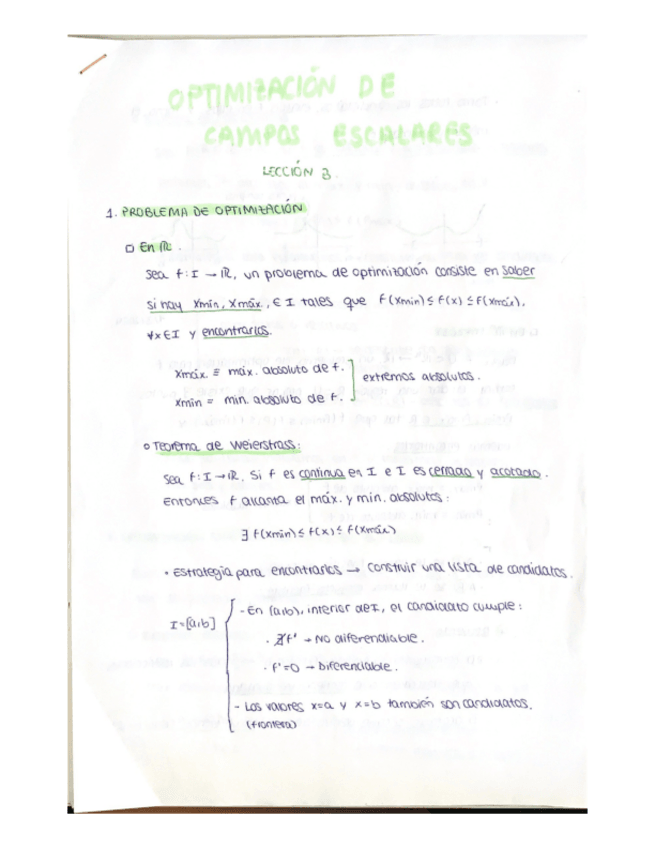 OPTIMIZACIÓN DE
CAMPOS ESCALARES
LECCIÓN 3.
1. PROBLEMA DE OPTIMIZACIÓN
En ℝ.
Sea f: I → ℝ, un problema de optimización consiste en saber
si hay xmín, xmáx, ∈ I tales que f(xmín) ≤ f(x) ≤ f(xmáx),
∀x ∈ I y encontrarlos.
xmáx. ≡ máx. absoluto de f.
xmin = min. absoluto de f.
extremos absolutos.
Teorema de Weierstrass:
Sea f: I → ℝ. Si f es continua en I e I es cerrado y acotado.
Entonces f alcanza el máx. y min. absolutos:
∃ f(xmín) ≤ f(x) ≤ f(xmáx)
• Estrategia para encontrarlos → construir una lista de candidatos.
I = [a,b]
- En (a,b), interior de I, el candidato cumple:
· ∄f' → No diferenciable.
· f'=0 → Diferenciable.
- Los valores x=a y x=b también son candidatos.
(frontera)